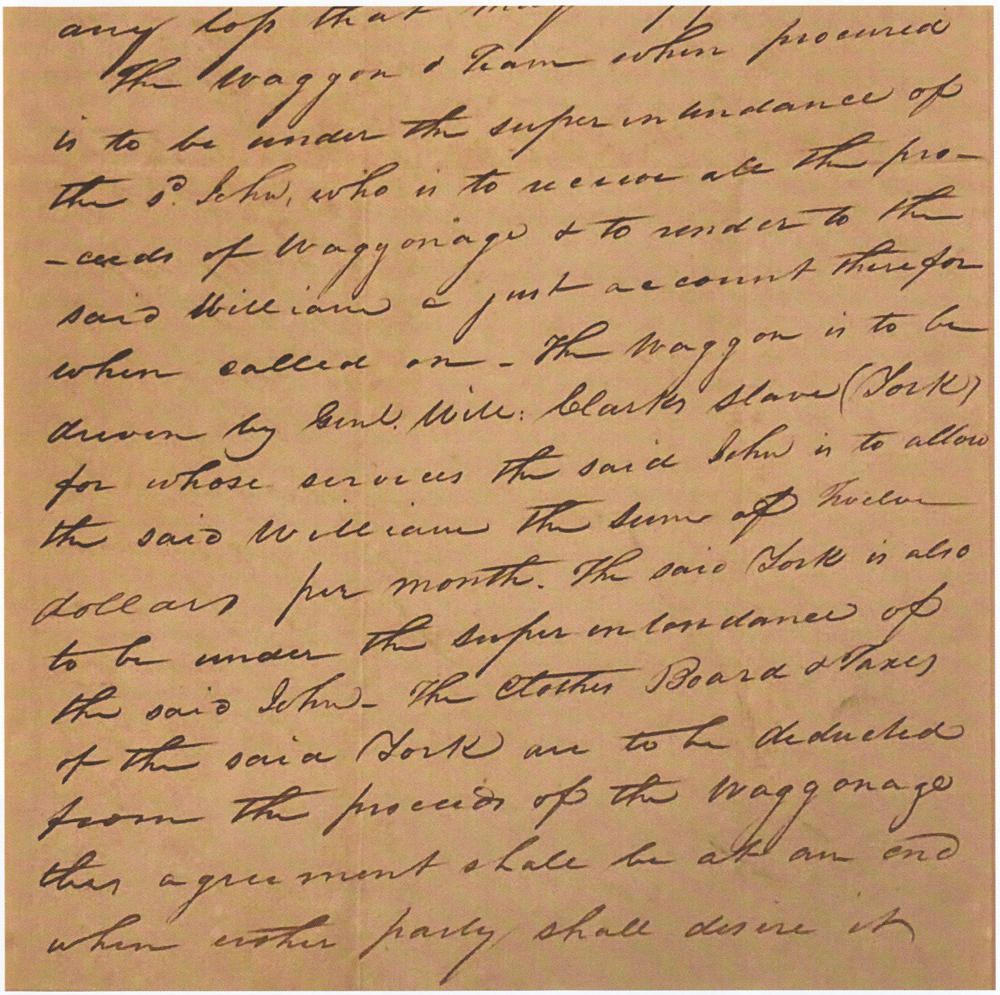 any loss that may
The Waggon & Team when procured
is to be under the superintendance of
the sd. John, who is to receive all the pro-
-ceeds of Waggonage & to render to the
said William a just account therefor
when called on - The Waggon is to be
driven by Genl. Will: Clarks slave (York)
for whose services the said John is to allow
the said William the sum of Twelve
dollars per month. The said York is also
to be under the superintendance of
the said John - The Clothes Board & Taxes
of the said York are to be deducted
from the proceeds of the Waggonage
this agreement shall be at an end
when either party shall desire it